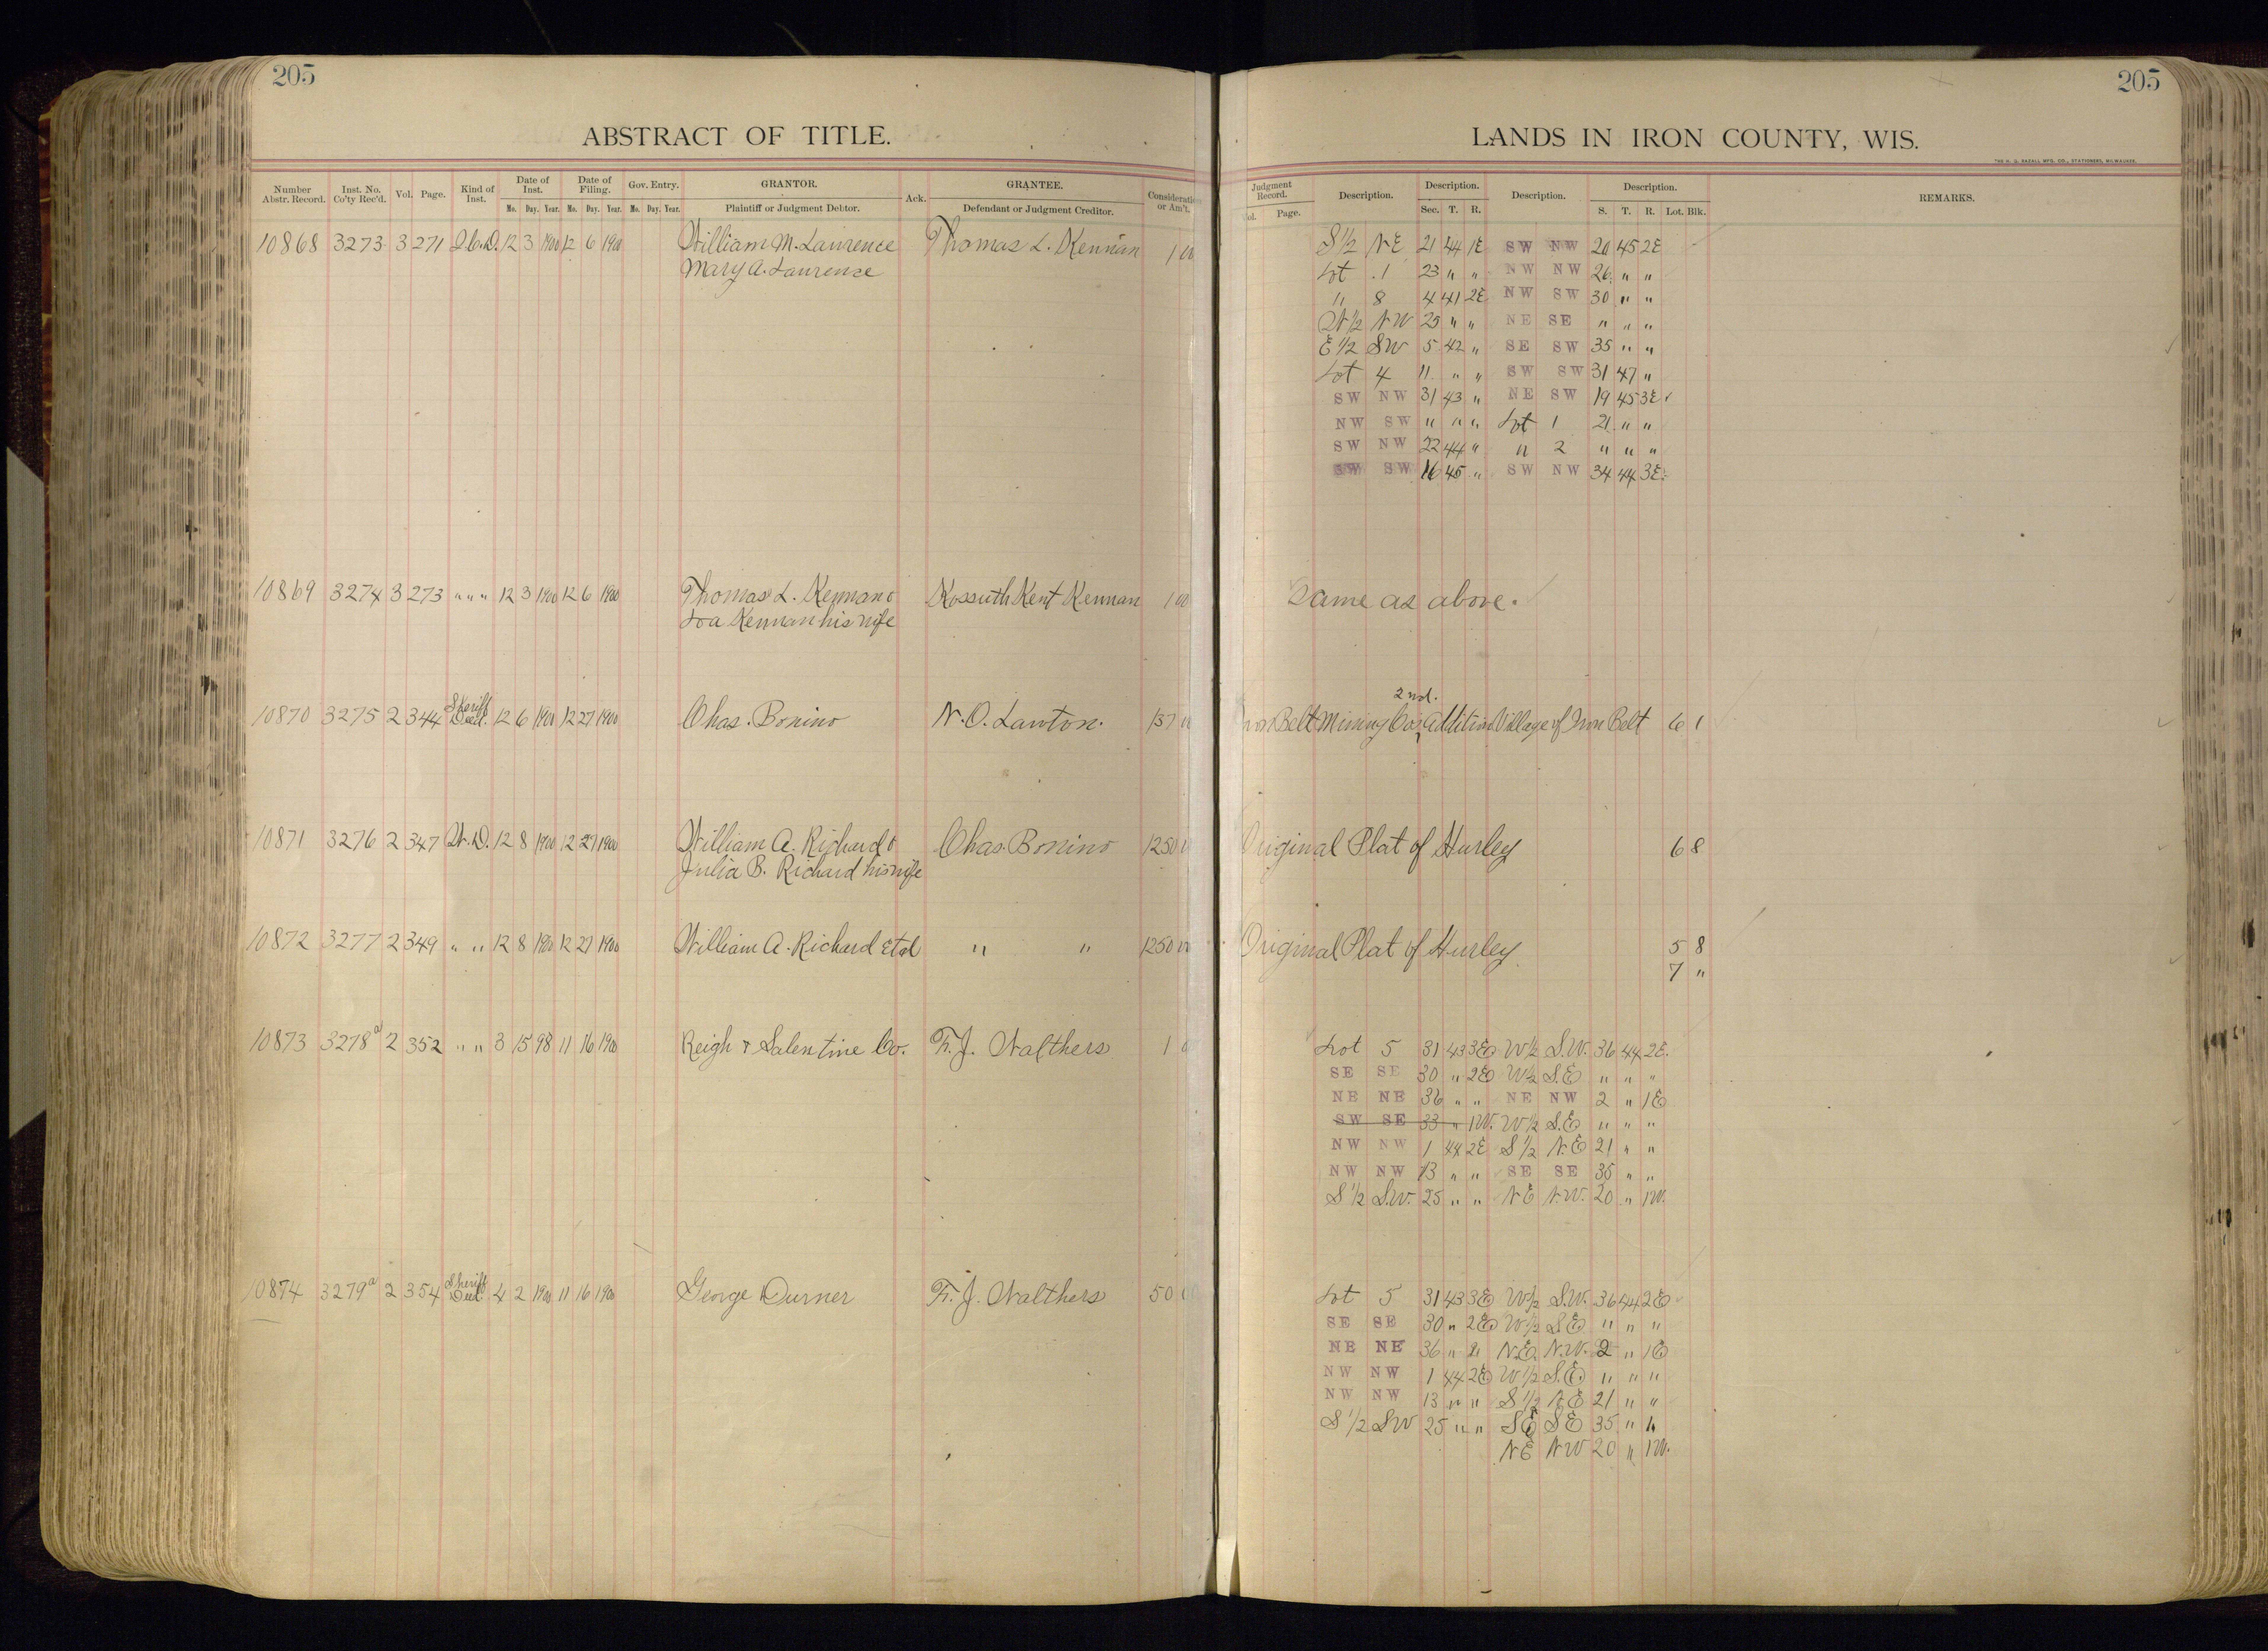 205
ABSTRACT OF TITLE.
Number Abstr. Record. Inst. No. Co'ty Rec'd. Vol. Page. Kind of Inst. Date of Inst. Date of Filing. Gov. Entry. GRANTOR. Ack. GRANTEE. Consideration or Am't.
Mo. Day. Year. Mo. Day. Year. Mo. Day. Year. Plaintiff or Judgment Debtor. Defendant or Judgment Creditor.
10868 3273 3 271 Q.C.D. 12 3 1900 12 6 1900 William M. Laurence Thomas L. Kennan 1 00
Mary A. Laurence
10869 3274 3 273 " " " 12 3 1900 12 6 1900 Thomas L. Kennan & Kossuth Kent Kennan 1 00
Loa Kennan his wife
10870 3275 2 344 Sheriff Deed. 12 6 1900 12 27 1900 Chas. Bonino N.O. Lawton. 137 00
10871 3276 2 347 W.D. 12 8 1900 12 27 1900 William A. Richard & Chas. Bonino 1250
Julia B. Richard his wife
10872 3277 2 349 " " 12 8 1900 12 27 1900 William A. Richard Etal " " 1250 00
10873 3278a 2 352 " " 3 15 98 11 16 1900 Reigh & Salentine Co. F.J. Walthers 1
10874 3279a 2 354 Sheriff Deed. 4 2 1900 11 16 1900 George Durner F.J. Walthers 50
205
LANDS IN IRON COUNTY, WIS.
THE H. G. RAZALL MFG. CO., STATIONERS, MILWAUKEE.
Judgment Record. Description. Description. Description. Description. REMARKS.
Vol. Page. Sec. T. R. S. T. R. Lot. Blk.
S 1/2 NE 21 44 1E SW NW 26 45 2E
Lot 1 23 " " NW NW 26 " "
" 8 4 41 2E NW SW 30 " "
W 1/2 NW 25 " " NE SE " " "
E 1/2 SW 5 42 " SE SW 35 " "
Lot 4 11 " " SW SW 31 47 "
SW NW 31 43 " NE SW 19 45 3E
NW SW " " " Lot 1 21 " "
SW NW 22 44 " " 2 " " "
SW SW 16 45 " SW NW 34 44 3E
Same as above.
2nd.
Iron Belt Mining Co's Addition Village of Iron Belt 6 1
Original Plat of Hurley 6 8
Original Plat of Hurley 5 8
7 "
Lot 5 31 43 3E W 1/2 S.W. 36 44 2E.
SE SE 30 " 2E W 1/2 S.E " " "
NE NE 36 " " NE NW 2 " 1E
SW SE 33 " 1W. W 1/2 S.E " " "
NW NW 1 44 2E S 1/2 N.E 21 " "
NW NW 13 " " SE SE 35 " "
S 1/2 S.W. 25 " " NE N.W. 20 " 1W.
Lot 5 31 43 3E W 1/2 S.W. 36 44 2E
SE SE 30 " 2E W 1/2 SE " " "
NE NE 36 " " N.E. N.W. 2 " 1E
NW NW 1 44 2E W 1/2 S.E " " "
NW NW 13 " " S 1/2 N.E 21 " "
S 1/2 SW 25 " " SE SE 35 " "
NE NW 20 " 1W.